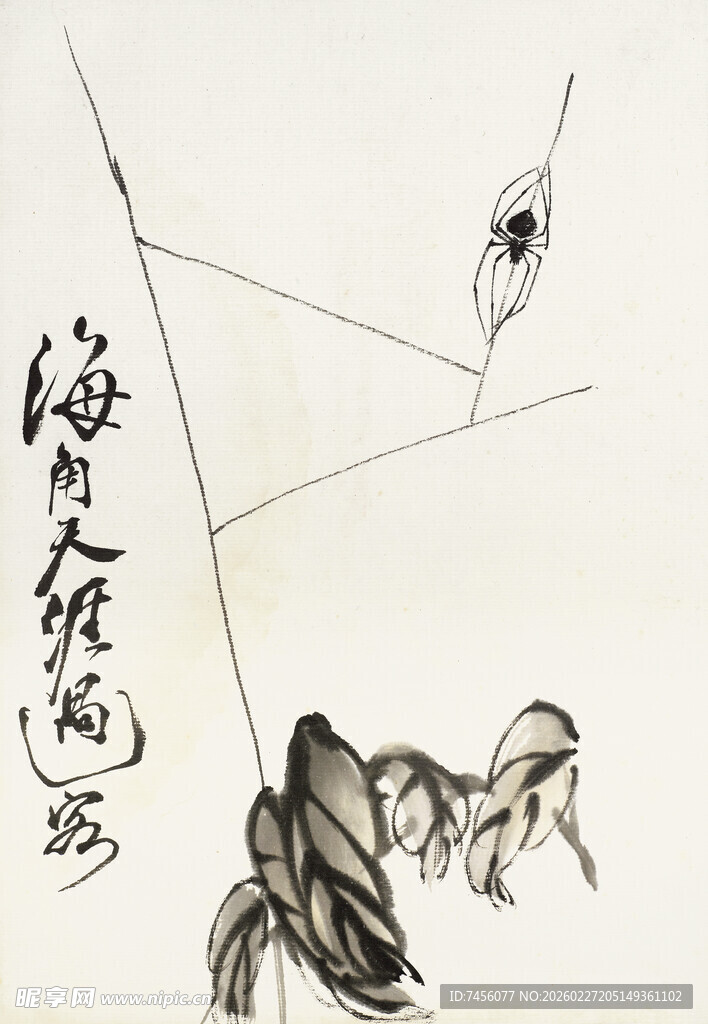 海角天涯過客
昵享网 www.nipic.cn
ID:7456077 NO:20260227205149361102